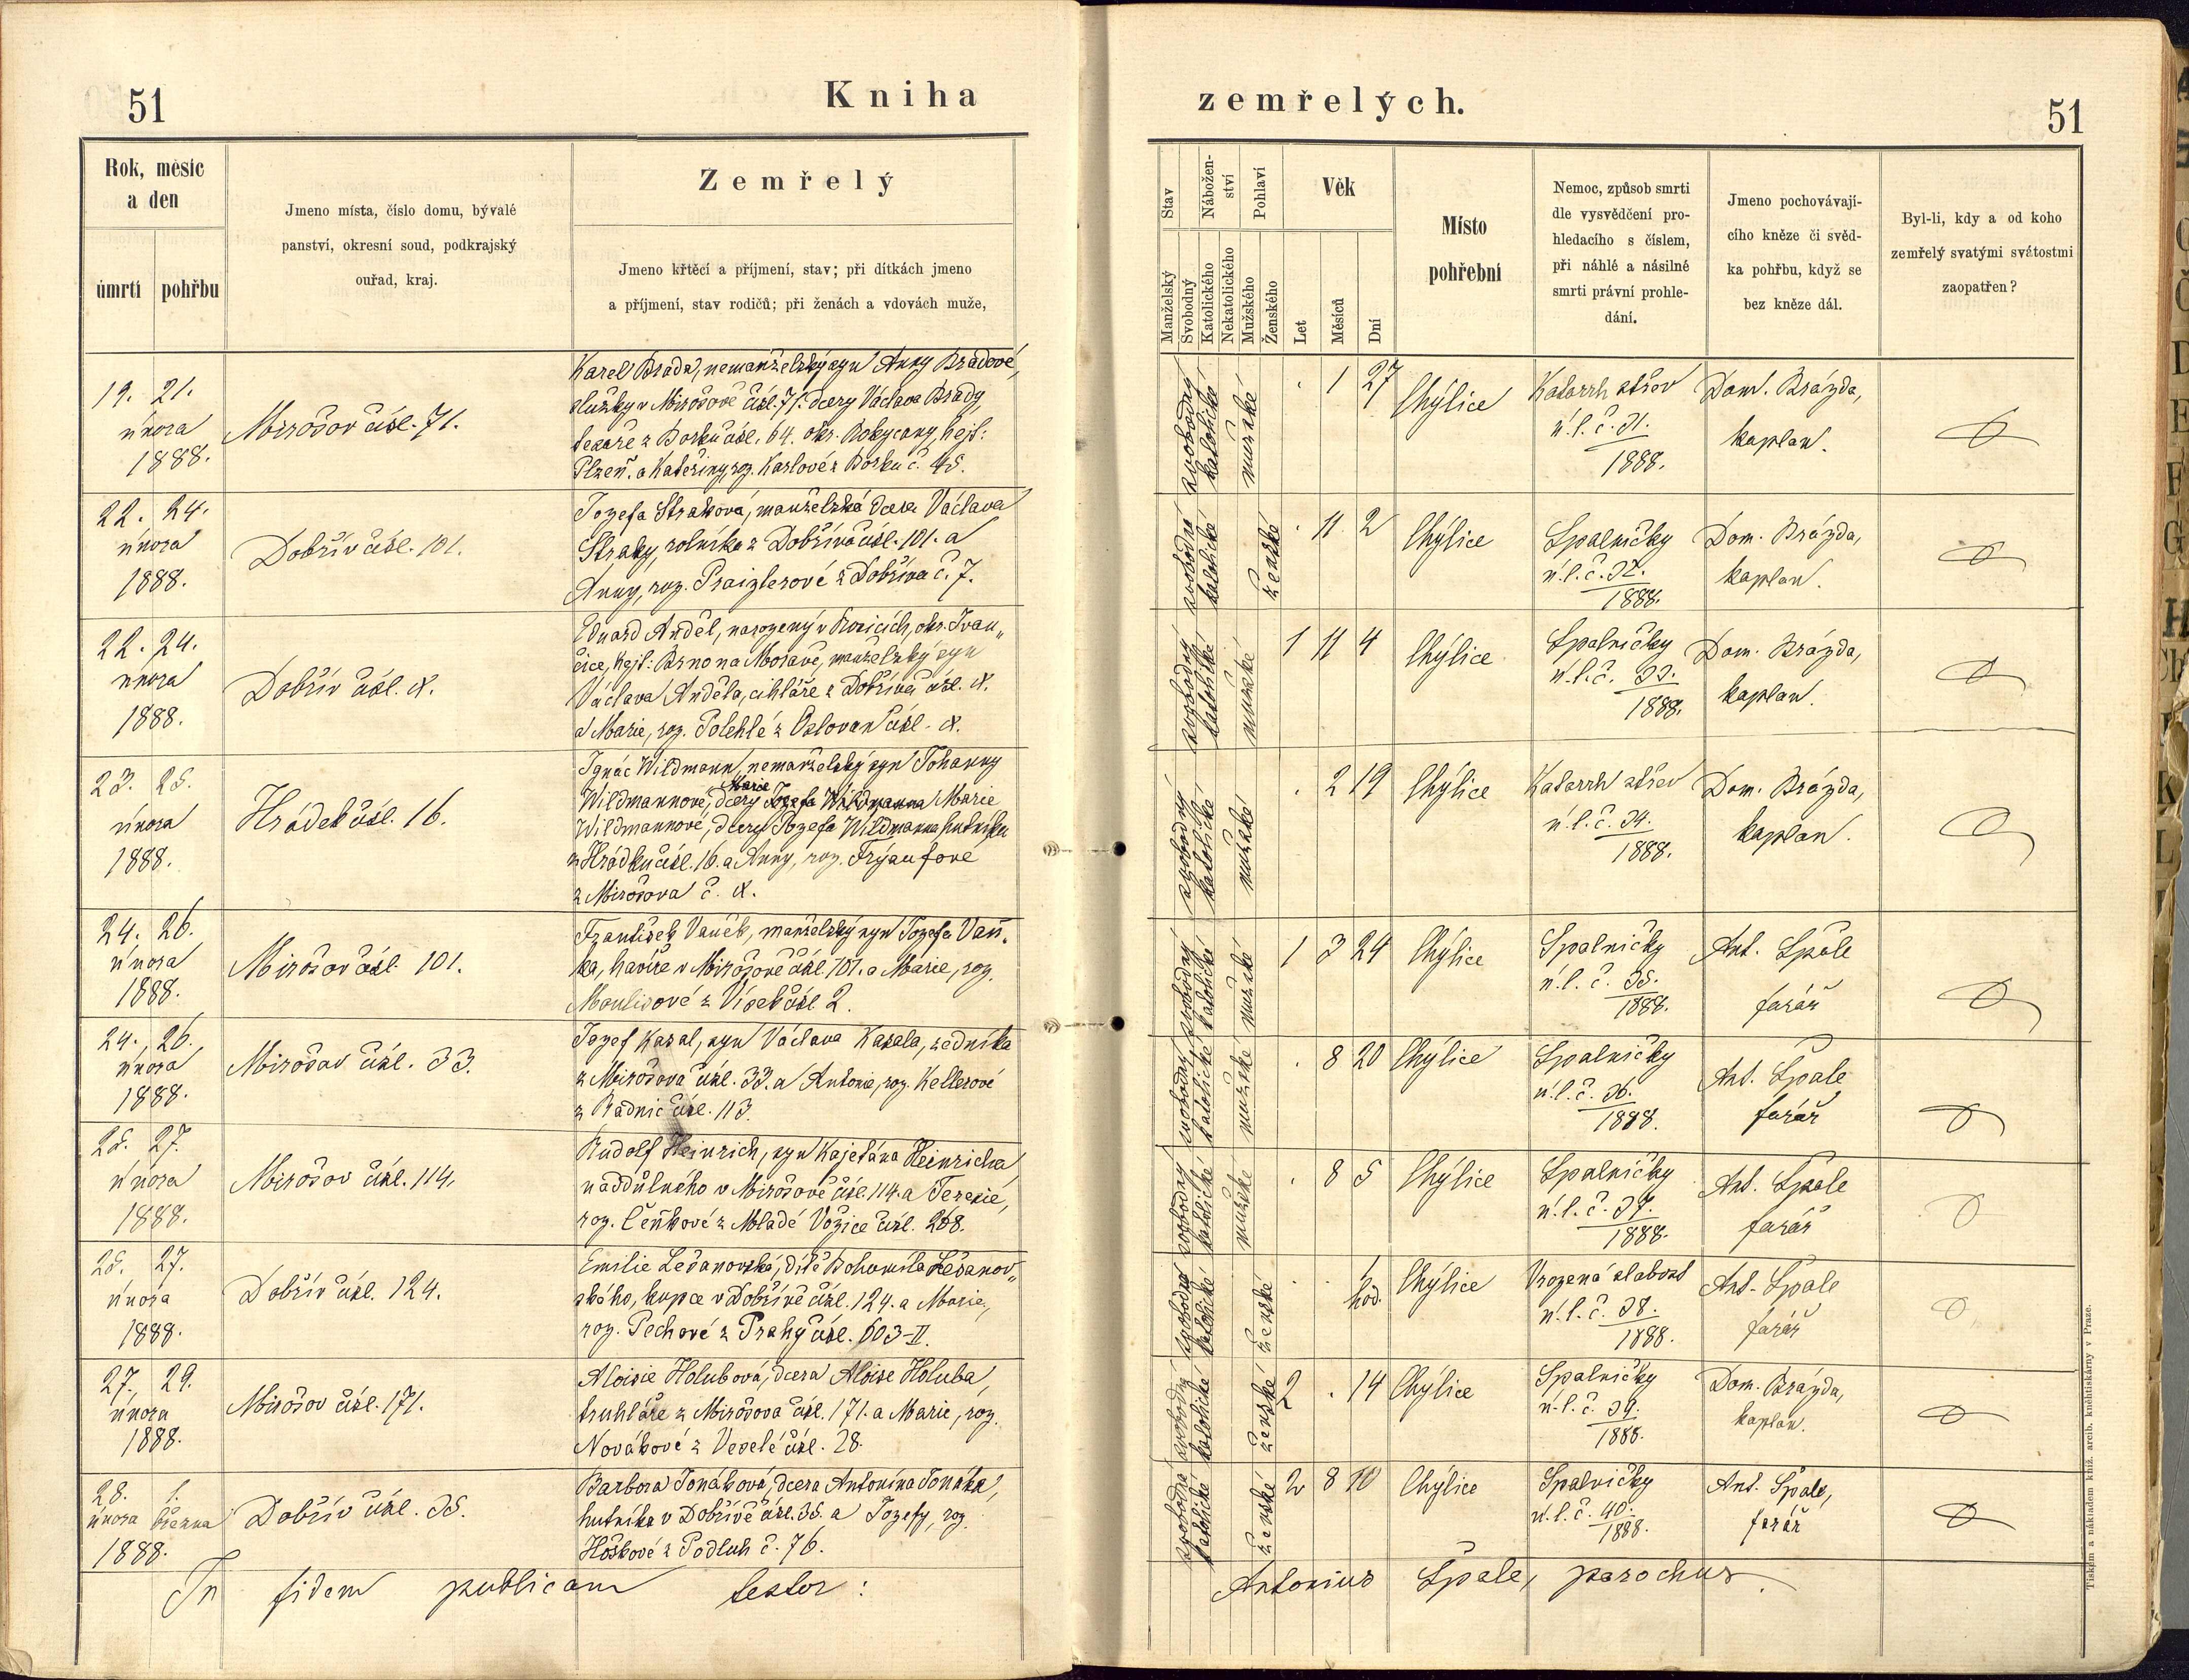 51
Kniha
zemřelých.
51
Rok, měsíc
a den
úmrtí
pohřbu
Jmeno místa, číslo domu, bývalé
panství, okresní soud, podkrajský
ouřad, kraj.
Zemřelý
Jmeno křtěcí a příjmení, stav; při dítkách jmeno
a příjmení, stav rodičů; při ženách a vdovách muže,
Stav
Manželský
Svobodný
Nábožen-
ství
Katolického
Nekatolického
Pohlaví
Mužského
Ženského
Věk
Let
Měsíců
Dní
Místo
pohřební
Nemoc, způsob smrti
dle vysvědčení pro-
hledacího s číslem,
při náhlé a násilné
smrti právní prohle-
dání.
Jmeno pochovávají-
cího kněze či svěd-
ka pohřbu, když se
bez kněze dál.
Byl-li, kdy a od koho
zemřelý svatými svátostmi
zaopatřen?
19. 21.
února
1888.
Mirošov čísl. 71.
Karel Brada, nemanželský syn Anny Bradové,
služky v Mirošově čísl. 71. dcery Václava Brady,
tesaře z Borku čísl. 64. okr. Rokycany, hejt:
Plzeň. a Kateřiny, roz. Karlové z Borku č. 45.
svobodný
katolické
mužské
. 1 27
Chýlice
Katarrh střev
ú. l. č. 31.
1888.
Dom. Brázda,
kaplan.
22. 24.
února
1888.
Dobřív čísl. 101.
Jozefa Straková, manželská dcera Václava
Straky, rolníka z Dobříva čísl. 101. a
Anny, roz. Praizlerové z Dobříva č. 7.
svobodná
katolické
ženské
. 11 2
Chýlice
Spalničky
ú. l. č. 32.
1888.
Dom. Brázda,
kaplan.
22. 24.
února
1888.
Dobřív čísl. X.
Eduard Anděl, narozený v Rosicích, okr. Ivan„
čice, hejt: Brno na Moravě, manželský syn
Václava Anděla, cihláře z Dobříva čísl. X.
a Marie, roz. Polehlé z Oslovan čísl. X.
svobodný
katolické
mužské
1 11 4
Chýlice
Spalničky
ú. l. č. 33.
1888.
Dom. Brázda,
kaplan.
23. 25.
února
1888.
Hrádek čísl. 16.
Ignác Wildmann, nemanželský syn Johanny
Marie
Wildmannové, dcery Jozefa Wildmanna Marie
Wildmannové, dcery Jozefa Wildmanna hutníka
z Hrádku čísl. 16. a Anny, roz. Frýaufové
z Mirošova č. X.
svobodný
katolické
mužské
. 2 19
Chýlice
Katarrh střev
ú. l. č. 34.
1888.
Dom. Brázda,
kaplan.
24. 26.
února
1888.
Mirošov čísl. 101.
František Vaněk, manželský syn Jozefa Vaň„
ka, havíře v Mirošově čísl. 101. a Marie, roz.
Moulisové z Vísek čísl. 2.
svobodný
katolické
mužské
1 3 24
Chýlice
Spalničky
ú. l. č. 35.
1888.
Ant. Špale
farář
24. 26.
února
1888.
Mirošov čísl. 33.
Jozef Kasal, syn Václava Kasala, zedníka
z Mirošova čísl. 33. a Antonie, roz. Kellerové
z Radnic čísl. 113.
svobodný
katolické
mužské
. 8 20
Chýlice
Spalničky
ú. l. č. 36.
1888.
Ant. Špale
farář
25. 27.
února
1888.
Mirošov čísl. 114.
Rudolf Heinrich, syn Kajetána Heinricha,
naddůlního v Mirošově čísl. 114. a Terezie,
roz. Čeňkové z Mladé Vožice čísl. 268.
svobodný
katolické
mužské
. 8 5
Chýlice
Spalničky
ú. l. č. 37.
1888.
Ant. Špale
farář
25. 27.
února
1888.
Dobřív čísl. 124.
Emilie Lešanovská, dítě Bohumila Lešanov„
ského, kupce v Dobřívě čísl. 124. a Marie,
roz. Pechové z Prahy čísl. 603-II.
svobodná
katolické
ženské
. . 1 hod.
Chýlice
Vrozená slabost
ú. l. č. 38.
1888.
Ant. Špale
farář
27. 29.
února
1888.
Mirošov čísl. 171.
Aloisie Holubová, dcera Aloise Holuba,
truhláře z Mirošova čísl. 171. a Marie, roz.
Novákové z Veselé čísl. 28.
svobodný
katolické
ženské
2 . 14
Chýlice
Spalničky
ú. l. č. 39.
1888.
Dom. Brázda,
kaplan.
28. 1.
února března
1888.
Dobřív čísl. 35.
Barbora Tonáková, dcera Antonína Tonáka,
hutníka v Dobřívě čísl. 35. a Jozefy, roz.
Hoškové z Podluh č. 76.
svobodná
katolické
ženské
2 8 10
Chýlice
Spalničky
ú. l. č. 40.
1888.
Ant. Špale,
farář
In fidem publicam testor:
Antonius Špale, parochus.
Tiskem a nákladem kníž. arcib. knihtiskárny v Praze.